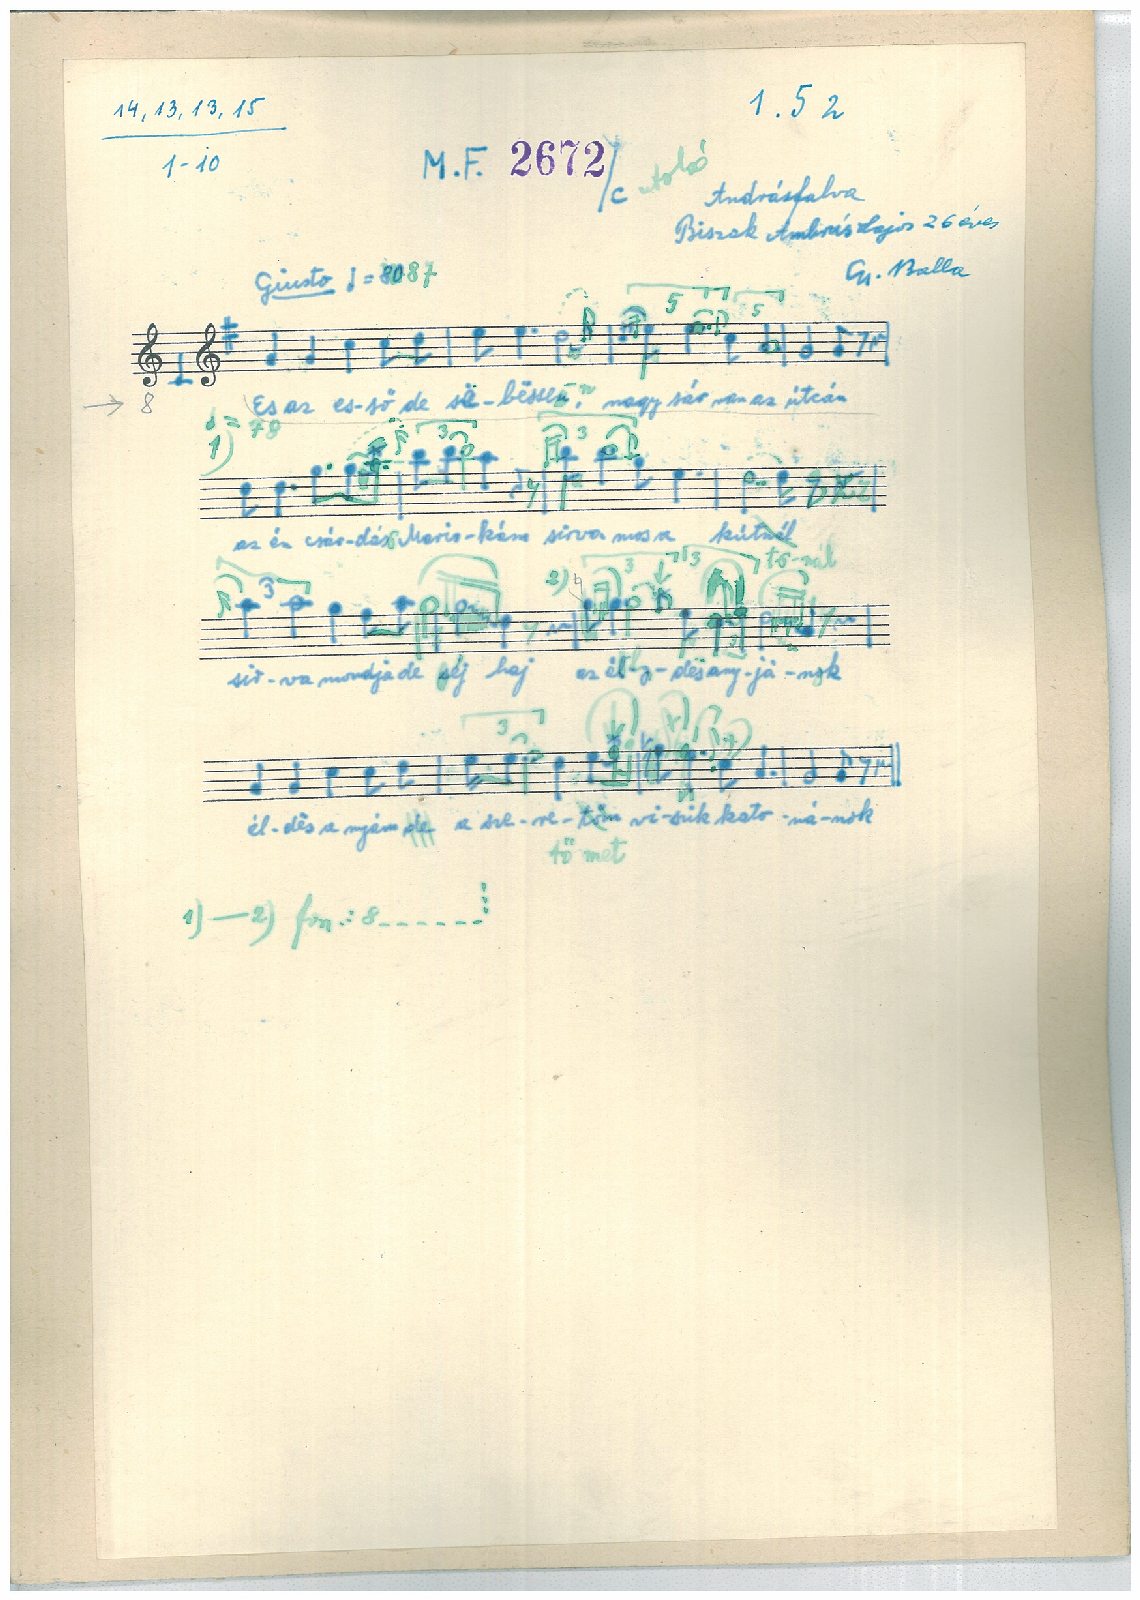 14, 13, 13, 15
1-10
1.52
M.F. 2672/c utolsó
Andrásfalva
Biszak Ambrus Lajos 26 éves
Gy. Balla
Giusto ♩= 80 87
5 5
8
Es az es-ső de se-bëssen, nagy sár van az útcán
♩= 78
1) 3 3
az én csár-dás Maris-kám sirva mos a kútnál
tó-nál
3 2) 3 3
sir-va mondja de haj az él-dësany-já-nak
3
él-dës a nyám de a sze-re-töm vi-szik kato-ná-nak
tő met
1) — 2) fon.: 8------